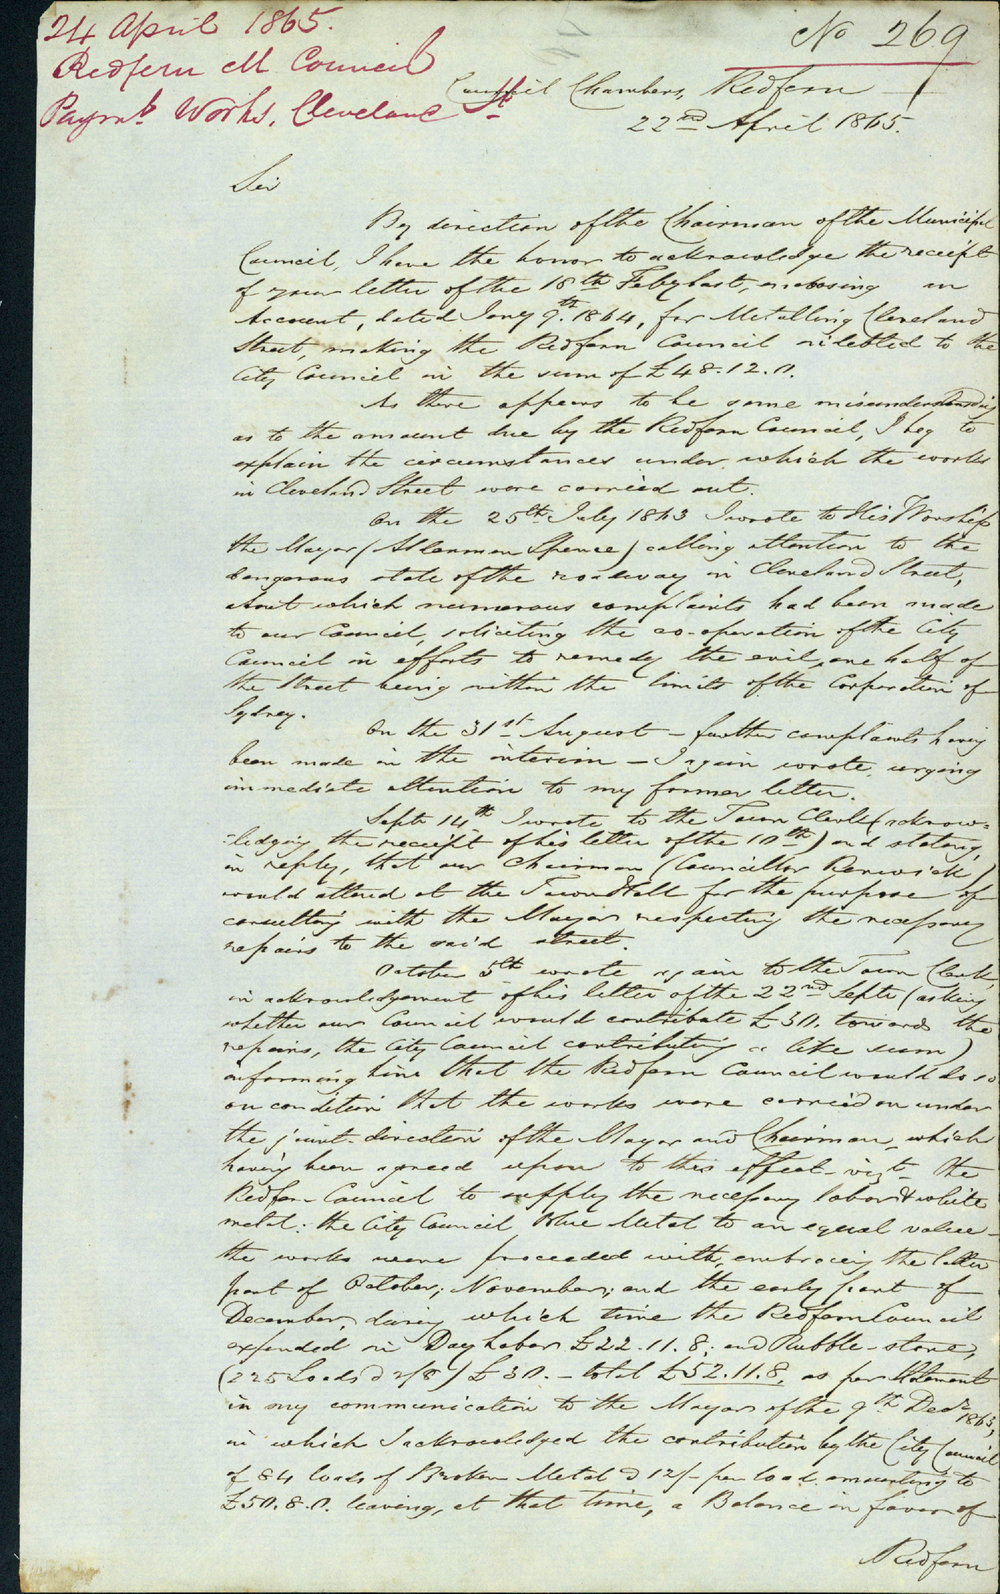 24 April 1865.
Redfern M Council
Paymt Works, Cleveland St
No 269
Council Chambers, Redfern
22nd April 1865.
Sir
By direction of the Chairman of the Municipal
Council, I have the honor to acknowledge the receipt
of your letter of the 18th Feby last, enclosing an
Account, dated Jany 9th 1864, for Metalling Cleveland
Street, making the Redfern Council indebted to the
City Council in the sum of £48.12.0.
As there appears to be some misunderstanding
as to the amount due by the Redfern Council, I beg to
explain the circumstances under which the works
in Cleveland Street were carried out.
On the 25th July 1863 I wrote to His Worship
the Mayor (Alderman Spence) calling attention to the
dangerous state of the roadway in Cleveland Street,
about which numerous complaints had been made
to our Council, soliciting the co-operation of the City
Council in efforts to remedy the evil, one half of
the Street being within the limits of the Corporation of
Sydney.
On the 31st August – further complaints having
been made in the interim – I again wrote, urging
immediate attention to my former letter.
Septr 14th I wrote to the Town Clerk (acknow-
-ledging the receipt of his letter of the 10th) and stating,
in reply, that our Chairman (Councillor Renwick)
would attend at the Town Hall for the purpose of
consulting with the Mayor respecting the necessary
repairs to the said street.
October 5th wrote again to the Town Clerk,
in acknowledgement of his letter of the 22nd Septr (asking
whether our Council would contribute £30. towards the
repairs, the City Council contributing a like sum)
informing him that the Redfern Council would do so
on condition that the works were carried on under
the joint direction of the Mayor and Chairman, which
having been agreed upon to this effect – vizt – the
Redfern Council to supply the necessary labor & white
metal: the City Council blue Metal to an equal value –
the works were proceeded with, embracing the latter
part of October; November; and the early part of
December, during which time the Redfern Council
expended in Day Labor £22.11.8; and Rubble-stone,
(225 Loads @ 2/8) £30. – total £52.11.8, as per Statement
in my communication to the Mayor of the 9th Decr 1863,
in which I acknowledged the contribution by the City Council
of 84 loads of Broken Metal @ 12/- per load amounting to
£50.8.0. leaving, at that time, a Balance in favor of
Redfern